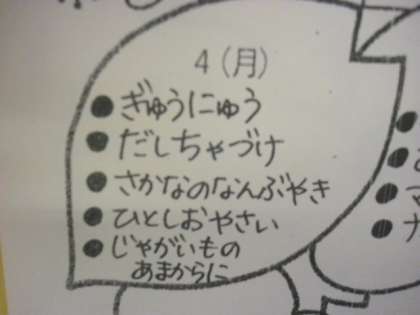 4(月)
●ぎゅうにゅう
●だしちゃづけ
●さかなのなんぶやき
●ひとしおやさい
●じゃがいもの
あまからに